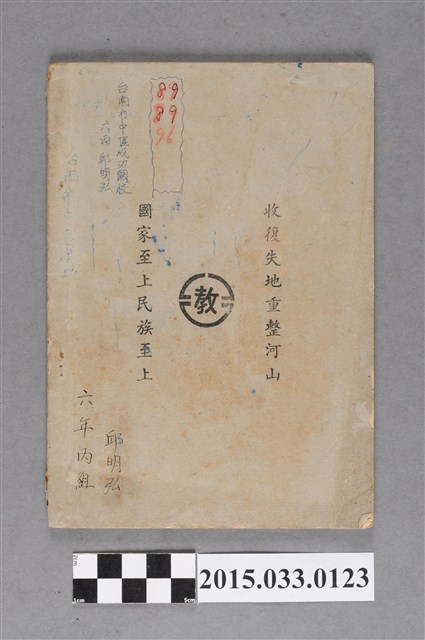 收復失地重整河山
教
國家至上民族至上
89
89
96
台南市中區成功國校
六丙 邱明弘
邱明弘
六年丙組
2cm
1cm
5cm
2015.033.0123